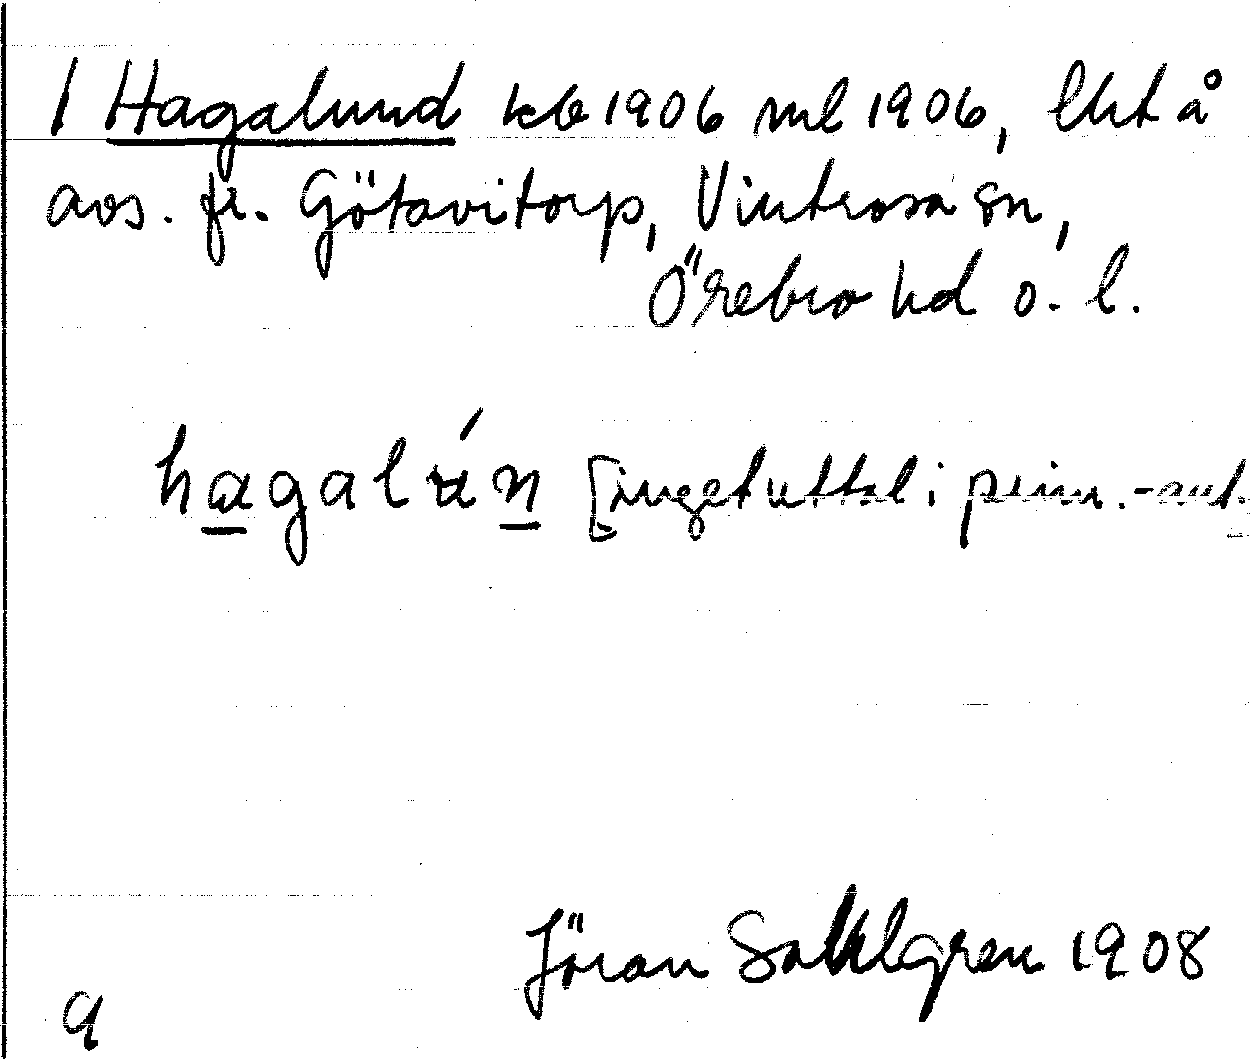 1 Hagalund kb 1906 ml 1906, lht å
avs. fr. Götavi torp, Vintrosa sn,
Örebro hd o. l.
hagalún [inget uttal i prim.-ant.
Jöran Sahlgren 1908
a